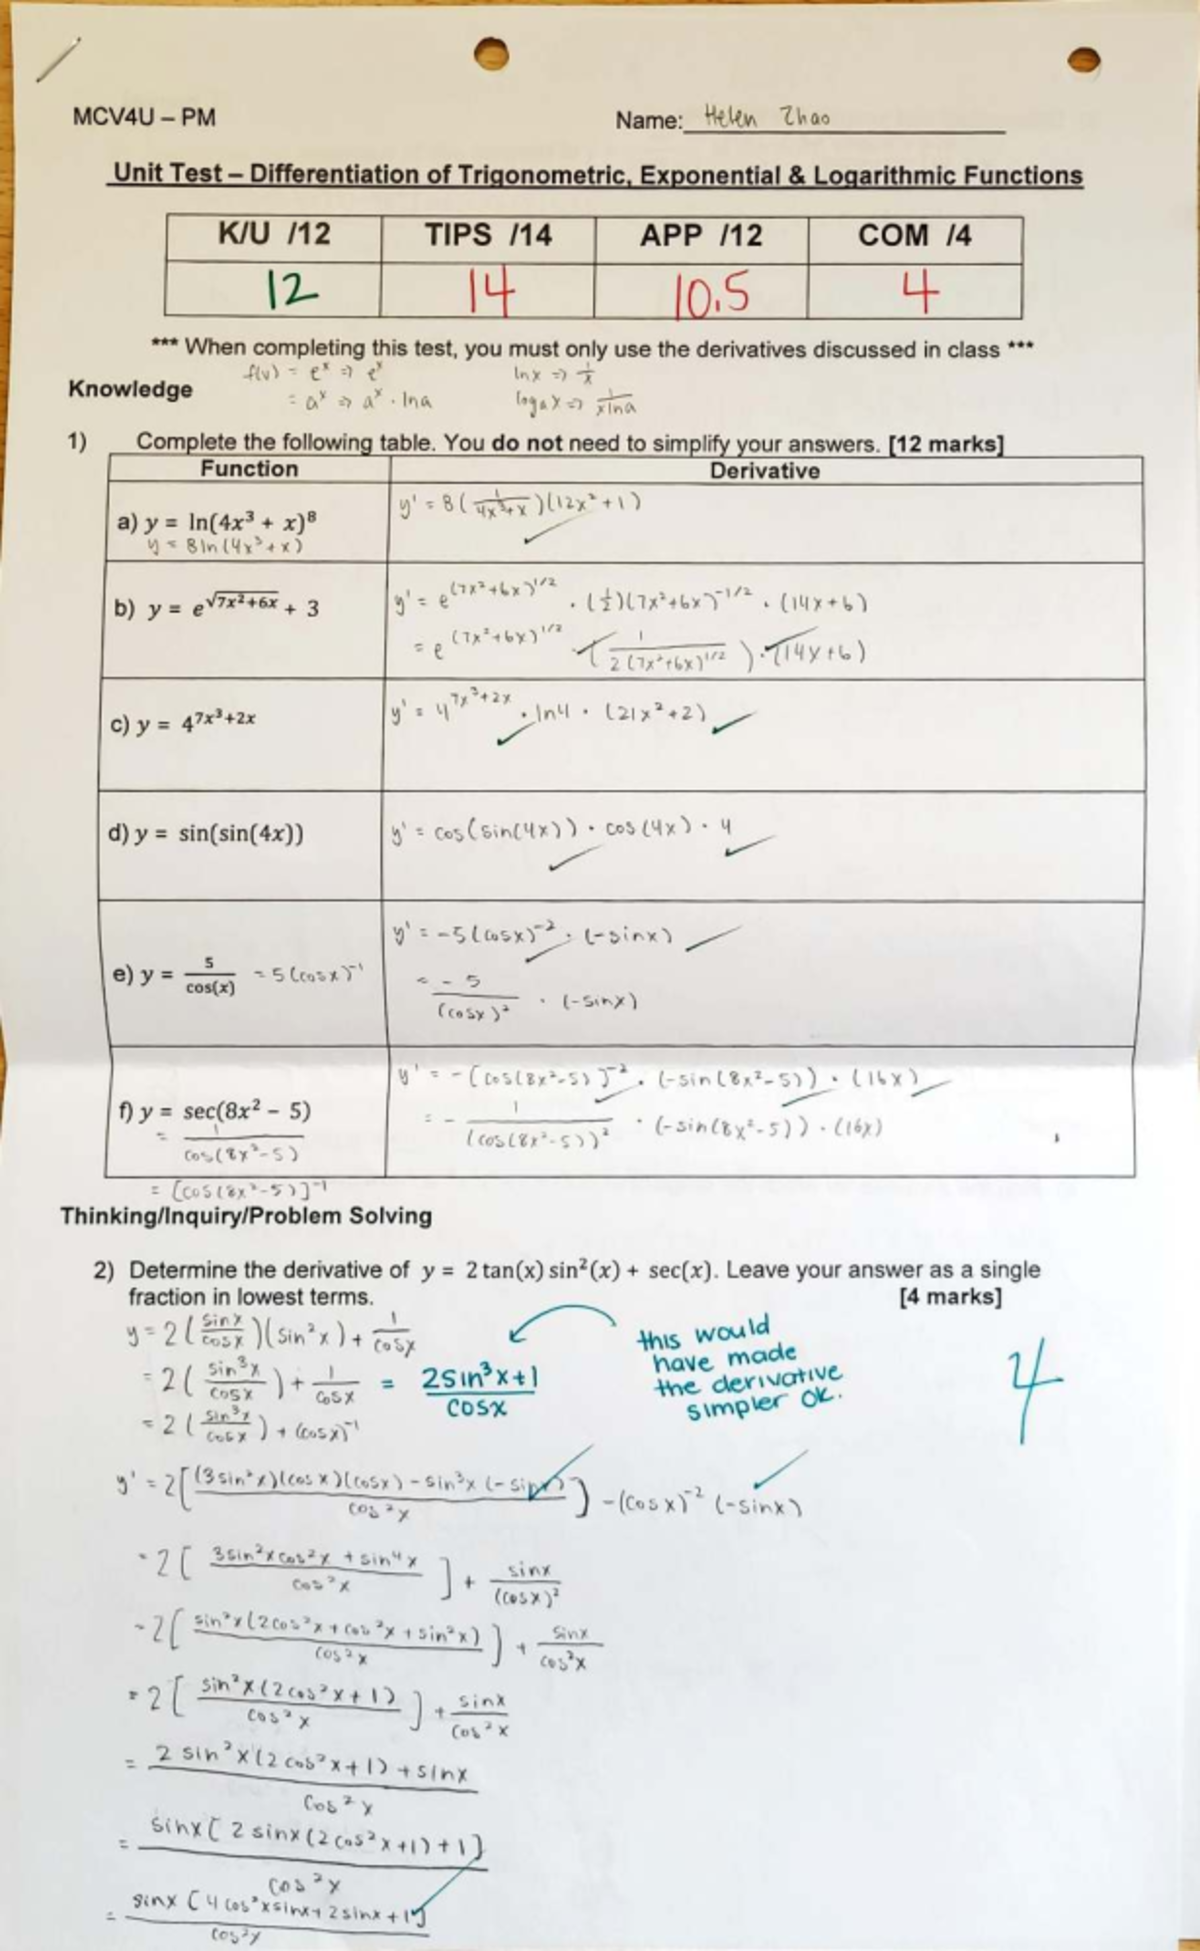 MCV4U – PM
Name: Helen Zhao
Unit Test – Differentiation of Trigonometric, Exponential & Logarithmic Functions
K/U /12 TIPS /14 APP /12 COM /4
12 14 10.5 4
*** When completing this test, you must only use the derivatives discussed in class ***
f(x) = e^x ⇒ e^x ln x ⇒ 1/x
Knowledge
= a^x ⇒ a^x · ln a log_a x ⇒ 1/(x ln a)
1) Complete the following table. You do not need to simplify your answers. [12 marks]
Function Derivative
a) y = ln(4x³ + x)⁸ y' = 8(1/(4x³+x))(12x²+1)
y = 8ln(4x³+x)
b) y = e^√(7x²+6x) + 3 y' = e^(7x²+6x)^(1/2) · (1/2)(7x²+6x)^(-1/2) · (14x+6)
= e^(7x²+6x)^(1/2) · (1/(2(7x²+6x)^(1/2))) · (14x+6)
c) y = 4^(7x³+2x) y' = 4^(7x³+2x) · ln4 · (21x²+2)
d) y = sin(sin(4x)) y' = cos(sin(4x)) · cos(4x) · 4
e) y = 5/cos(x) = 5(cosx)⁻¹ y' = -5(cosx)⁻² · (-sinx)
= -5/(cosx)² · (-sinx)
f) y = sec(8x² − 5) y' = -[cos(8x²-5)]⁻² · (-sin(8x²-5)) · (16x)
= 1/cos(8x²-5) = - 1/(cos(8x²-5))² · (-sin(8x²-5)) · (16x)
= [cos(8x²-5)]⁻¹
Thinking/Inquiry/Problem Solving
2) Determine the derivative of y = 2 tan(x) sin²(x) + sec(x). Leave your answer as a single
fraction in lowest terms. [4 marks]
y = 2(sinx/cosx)(sin²x) + 1/cosx
= 2(sin³x/cosx) + 1/cosx = (2sin³x+1)/cosx
this would
have made
the derivative
simpler ok.
4
= 2(sin³x/cosx) + (cosx)⁻¹
y' = 2[((3sin²x)(cosx)(cosx) - sin³x(-sinx))/cos²x] - (cosx)⁻² (-sinx)
= 2[(3sin²xcos²x + sin⁴x)/cos²x] + sinx/(cosx)²
= 2[sin²x(2cos²x + cos²x + sin²x)/cos²x] + sinx/cos²x
= 2[sin²x(2cos²x+1)/cos²x] + sinx/cos²x
= (2sin²x(2cos²x+1)+sinx)/cos²x
= sinx[2sinx(2cos²x+1)+1]/cos²x
= sinx[4cos²xsinx+2sinx+1]/cos²x